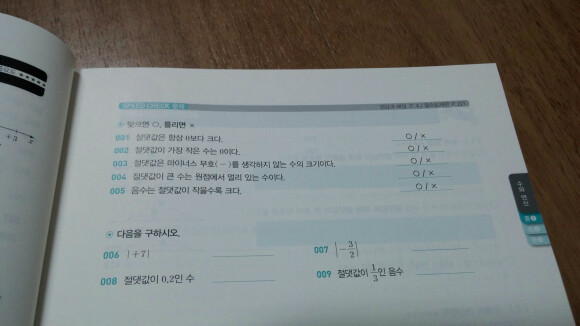 SPEED CHECK 문제
맞으면 ○, 틀리면 ×
001 절댓값은 항상 0보다 크다. O / ×
002 절댓값이 가장 작은 수는 0이다. O / ×
003 절댓값은 마이너스 부호(-)를 생각하지 않는 수의 크기이다. O / ×
004 절댓값이 큰 수는 원점에서 멀리 있는 수이다. O / ×
005 음수는 절댓값이 작을수록 크다. O / ×
수와 연산
중1
다음을 구하시오.
006 |+7| 007 |-3/2|
008 절댓값이 0.2인 수 009 절댓값이 1/3인 음수
+3 x